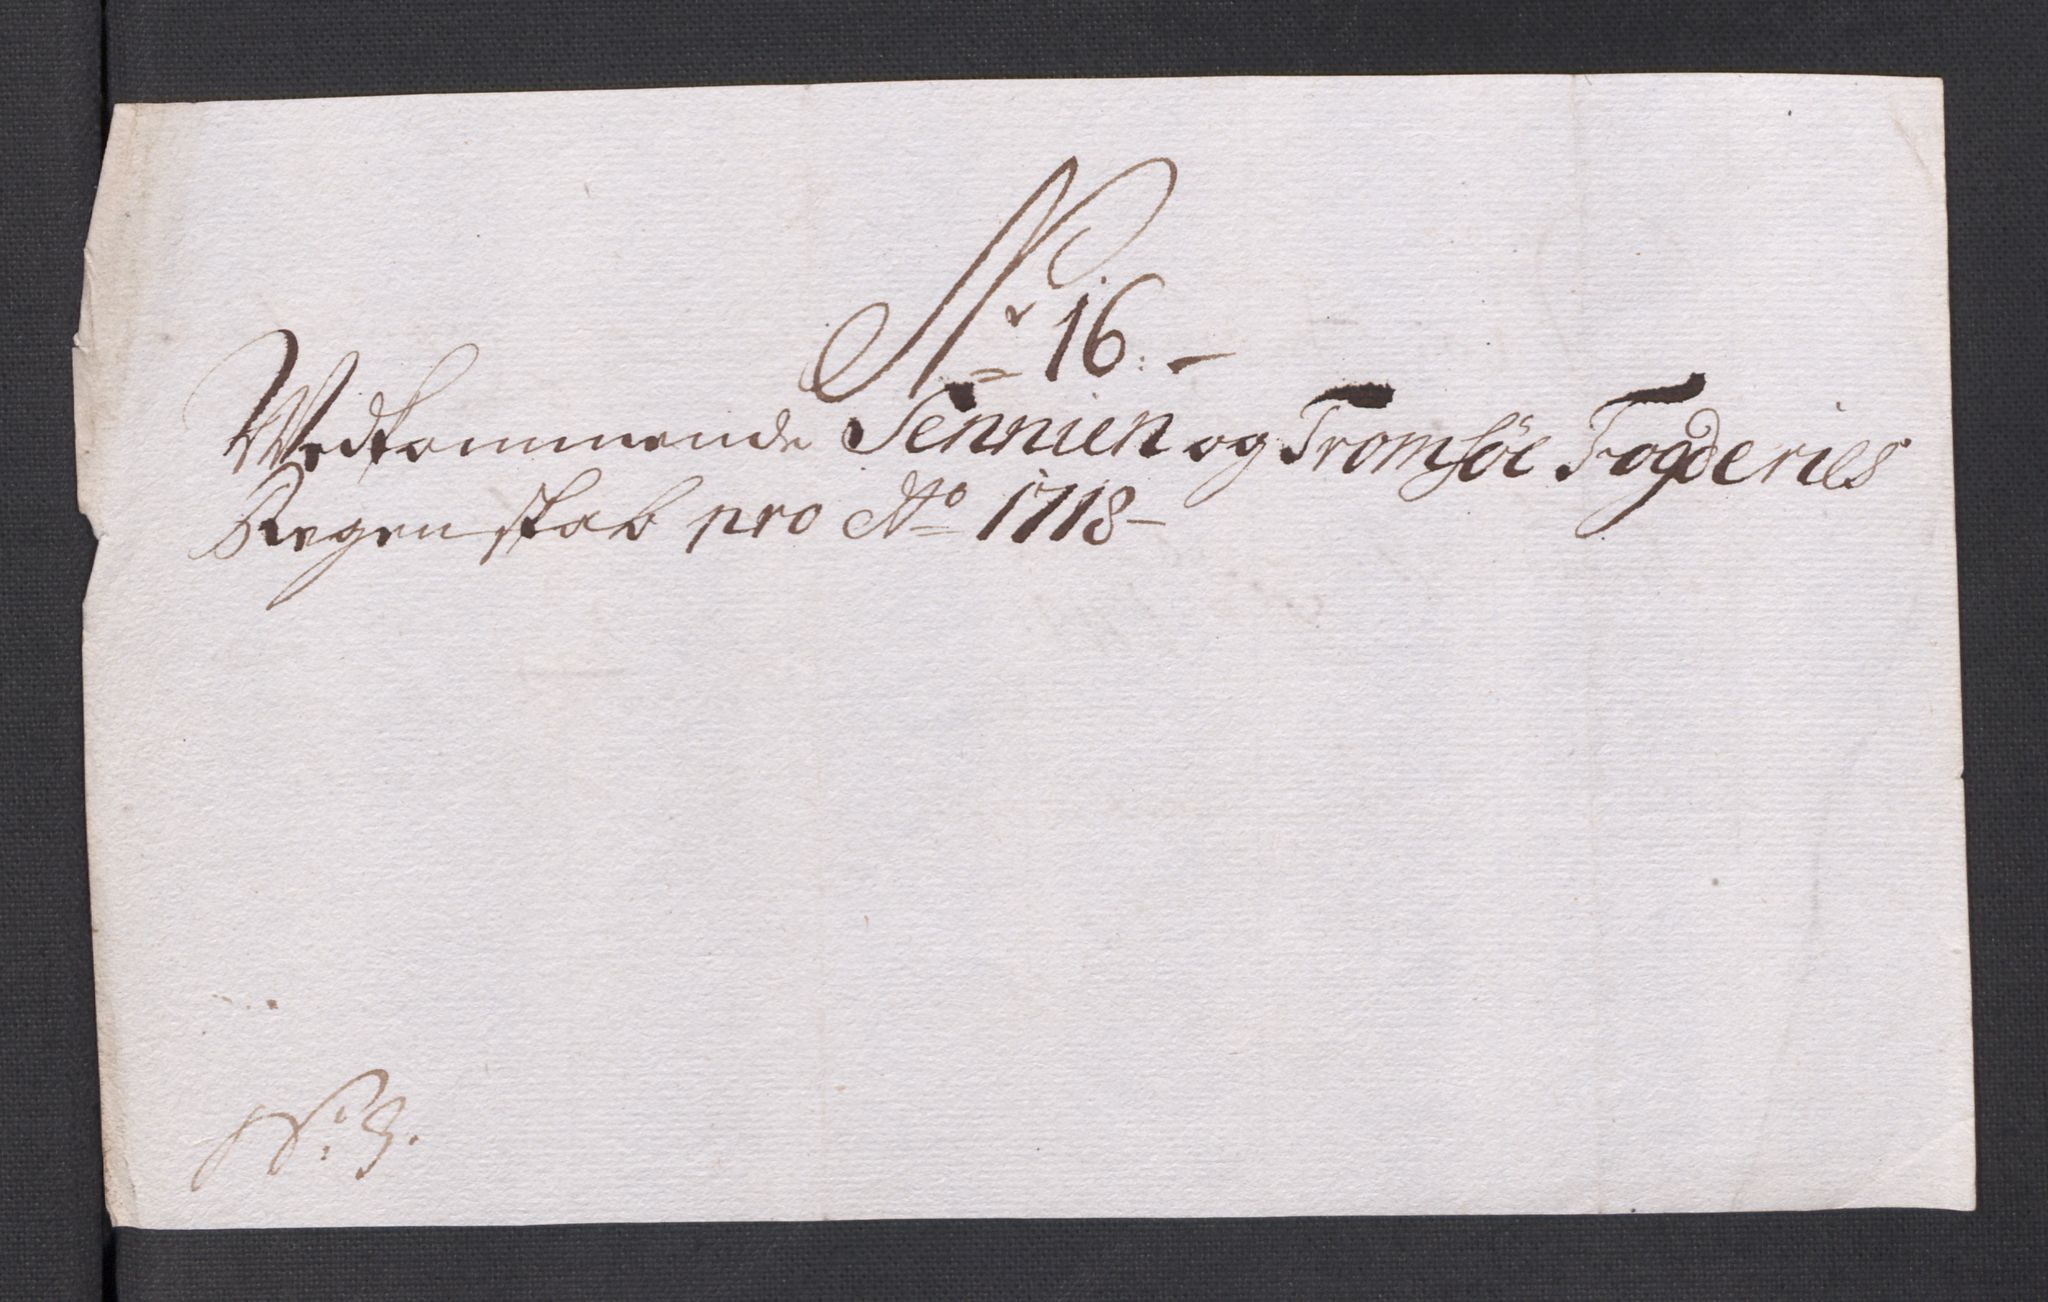 Nr 16. -
Vedkommende Sennien og Tromsöe Fogderies
Regenskab pro Ao 1718 -
No: 3.